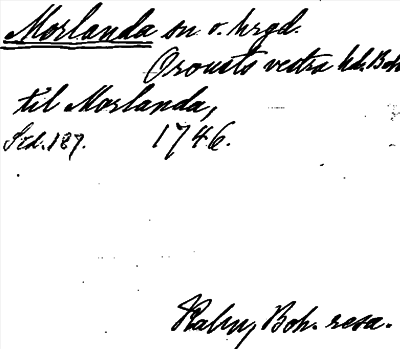 Morlanda sn o. hrgd.
Orousts vestra hd. Boh
til Morlanda,
Sid. 187. 1746.
Kalm, Boh. resa.